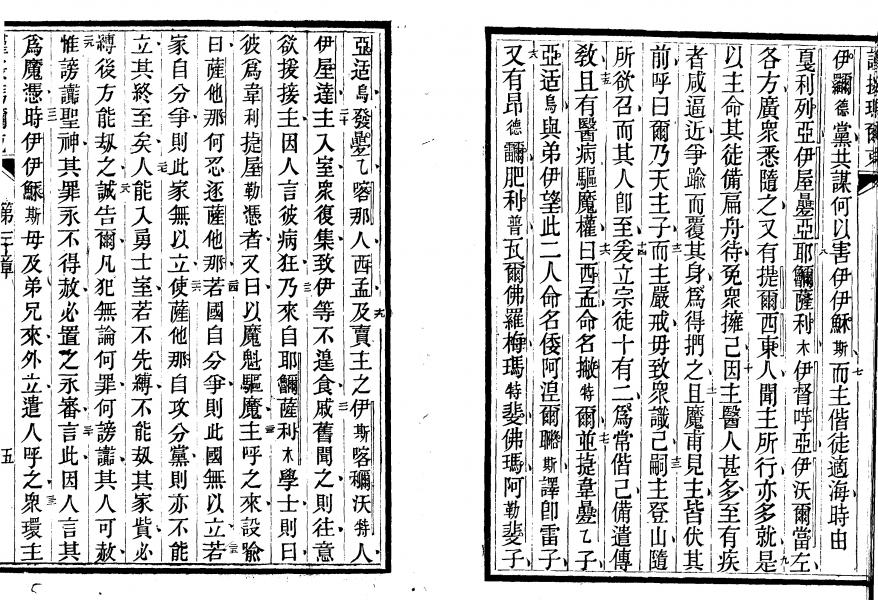 伊爾德黨共謀何以害伊伊穌斯而主偕徒適海時由
戛利列亞伊屋疊亞耶薩利木伊督哶亞伊沃爾當左
各方廣衆悉隨之又有提爾西東人聞主所行亦多就是
以主命其徒備扁舟待免衆擁己因主醫人甚多至有疾
者咸逼近爭踰而覆其身爲得捫之且魔甫見主皆伏其
前呼曰爾乃天主子而主嚴戒毋致衆識己嗣主登山隨
所欲召而其人卽至爰立宗徒十有二爲常偕己備遣傳
敎且有醫病驅魔權曰西孟命名撇特爾並提韋疊乙子
亞适烏與弟伊望此二人命名倭阿涅爾斯譯卽雷子
又有昂德肥利普瓦爾佛羅梅瑪特斐佛瑪阿勒斐子
亞适烏發疊乙喀那人西孟及賣主之伊斯喀沃特人
伊屋達主入室衆復集致伊等不遑食戚舊聞之則往意
欲援接主因人言彼病狂乃來自耶薩利木學士則曰
彼爲韋利提屋勒憑者又曰以魔魁驅魔主呼之來設喻
曰薩他那何忍逐薩他那若國自分爭則此國無以立若
家自分爭則此家無以立使薩他那自攻分黨則亦不能
立其終至矣人能入勇士室若不先縛不能刼其家貲必
縛後方能刼之誠吿爾凡犯無論何罪何謗讟其人可赦
惟謗讟聖神其罪永不得赦必置之永審言此因人言其
爲魔憑時伊伊穌斯母及弟兄來外立遣人呼之衆環主
第三章
五